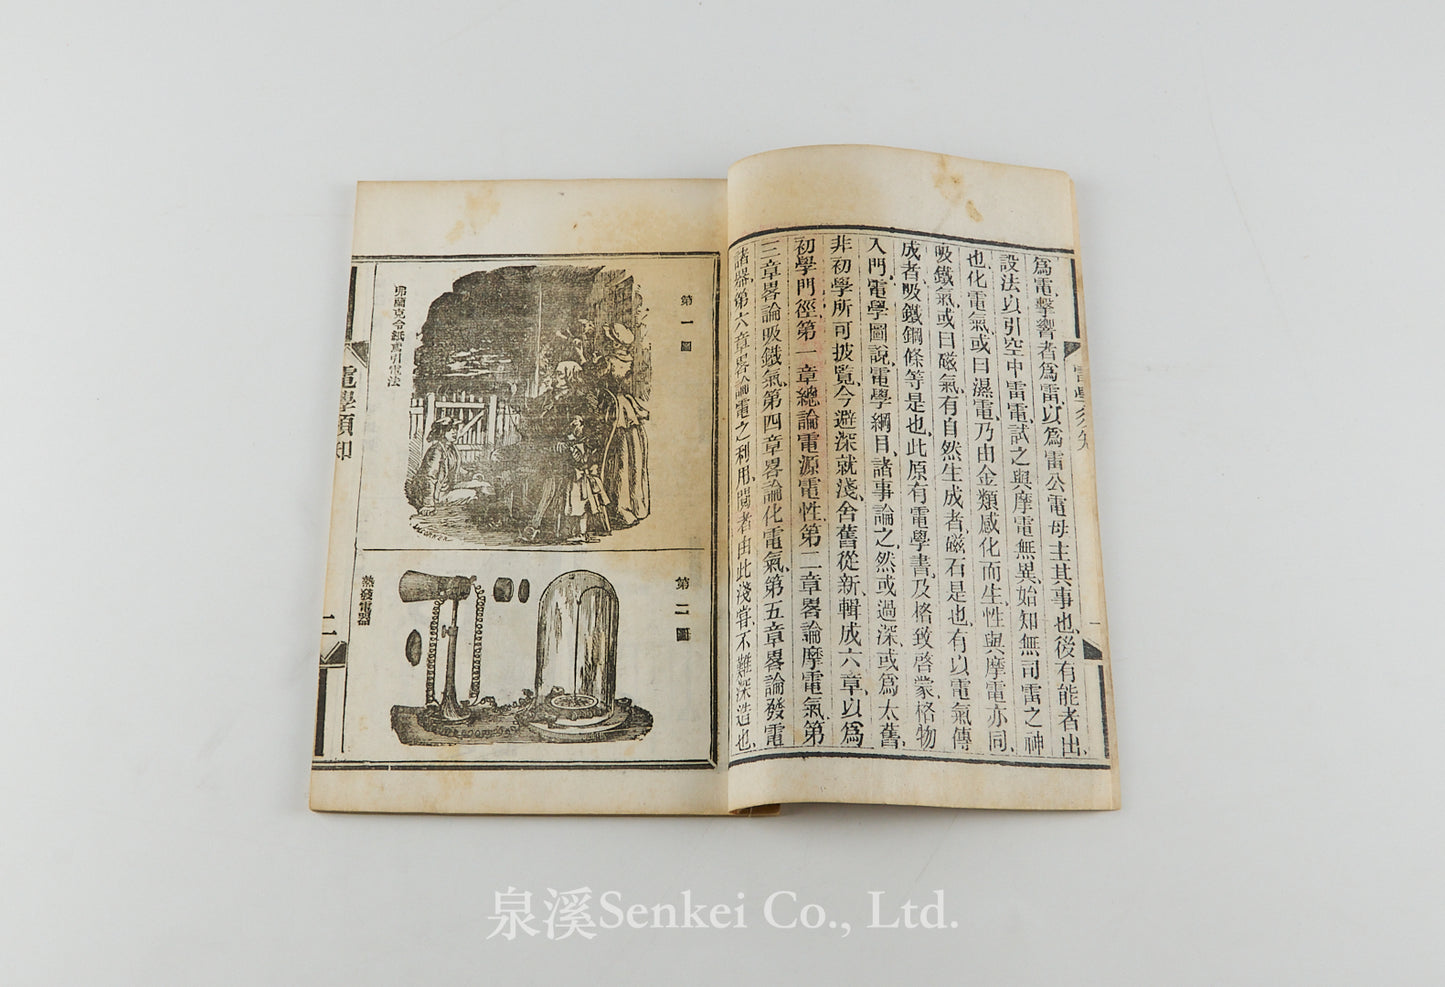 爲電、擊響者爲雷、以爲雷公電母主其事也、後有能者出、
設法以引空中雷電、試之與摩電無異、始知無司雷之神
也、化電氣、或曰濕電、乃由金類感化而生、性與摩電亦同、
吸鐵氣、或曰磁氣、有自然生成者、磁石是也、有以電氣傳
成者、吸鐵鋼條等是也、此原有電學書、及格致啓蒙、格物
入門、電學圖說、電學綱目、諸事論之、然或過深、或爲太舊、
非初學所可披覽、今避深就淺、舍舊從新、輯成六章、以爲
初學門徑、第一章總論電源電性、第二章畧論摩電氣、第
三章畧論吸鐵氣、第四章畧論化電氣、第五章畧論發電
諸器、第六章畧論電之利用、閱者由此淺嘗、不難深造也、
電學須知
一
第一圖
弗蘭克令紙鳶引電法
第二圖
熱發電器
電學須知
二
泉溪Senkei Co., Ltd.